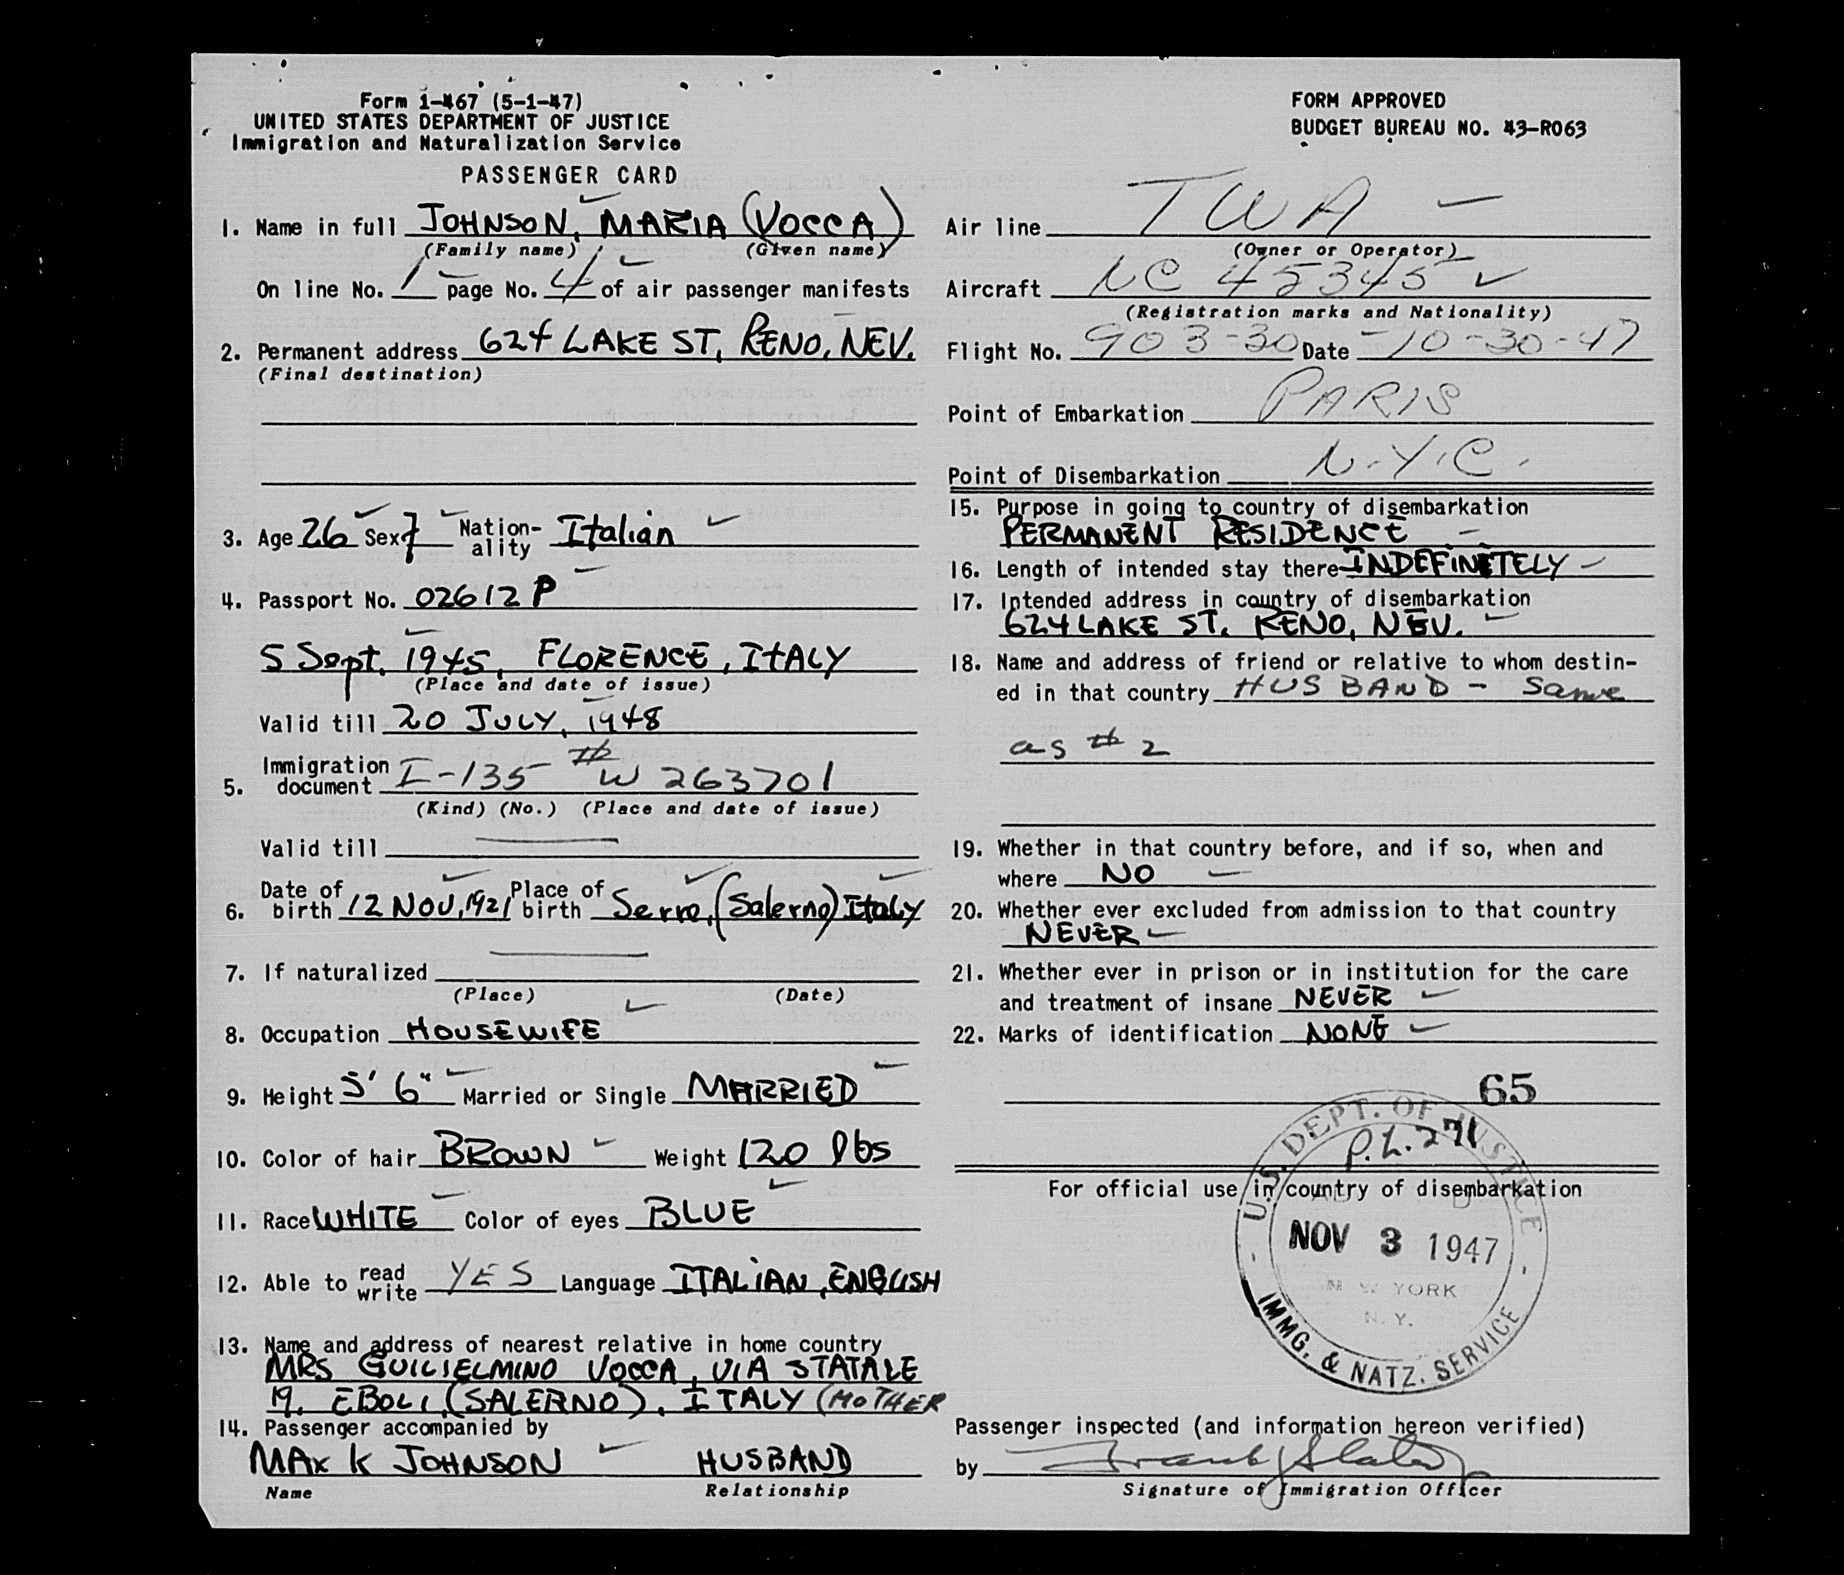 Form i-467 (5-1-47)
UNITED STATES DEPARTMENT OF JUSTICE
Immigration and Naturalization Service
PASSENGER CARD
FORM APPROVED
BUDGET BUREAU NO. 43-R063
1. Name in full JOHNSON, MARIA (VOCCA)
(Family name) (Given name)
On line No. 1 page No. 4 of air passenger manifests
2. Permanent address 624 LAKE ST, RENO, NEV.
(Final destination)
3. Age 26 Sex f Nation-ality Italian
4. Passport No. 02612 P
5 Sept. 1945, FLORENCE, ITALY
(Place and date of issue)
Valid till 20 JULY, 1948
5. Immigration document I-135 # W 263701
(Kind) (No.) (Place and date of issue)
Valid till
6. Date of birth 12 NOV, 1921 Place of birth Serro, (Salerno) Italy
7. If naturalized
(Place) (Date)
8. Occupation HOUSEWIFE
9. Height 5' 6" Married or Single MARRIED
10. Color of hair BROWN Weight 120 lbs
11. Race WHITE Color of eyes BLUE
12. Able to read write YES Language ITALIAN, ENGLISH
13. Name and address of nearest relative in home country
MRS GUILIELMINO VOCCA, VIA STATALE
19, EBOLI, (SALERNO), ITALY (MOTHER
14. Passenger accompanied by
MAX K JOHNSON HUSBAND
Name Relationship
Air line TWA
(Owner or Operator)
Aircraft NC 45345
(Registration marks and Nationality)
Flight No. 903-30 Date 10-30-47
Point of Embarkation PARIS
Point of Disembarkation N.Y.C.
15. Purpose in going to country of disembarkation
PERMANENT RESIDENCE
16. Length of intended stay there INDEFINITELY
17. Intended address in country of disembarkation
624 LAKE ST. RENO, NEV.
18. Name and address of friend or relative to whom destin-
ed in that country HUSBAND - Same
as # 2
19. Whether in that country before, and if so, when and
where NO
20. Whether ever excluded from admission to that country
NEVER
21. Whether ever in prison or in institution for the care
and treatment of insane NEVER
22. Marks of identification NONE
65
P.L. 271
For official use in country of disembarkation
U.S. DEPT. OF JUSTICE
NOV 3 1947
NEW YORK
N.Y.
IMMG. & NATZ. SERVICE
Passenger inspected (and information hereon verified)
by Frank Slater
Signature of Immigration Officer